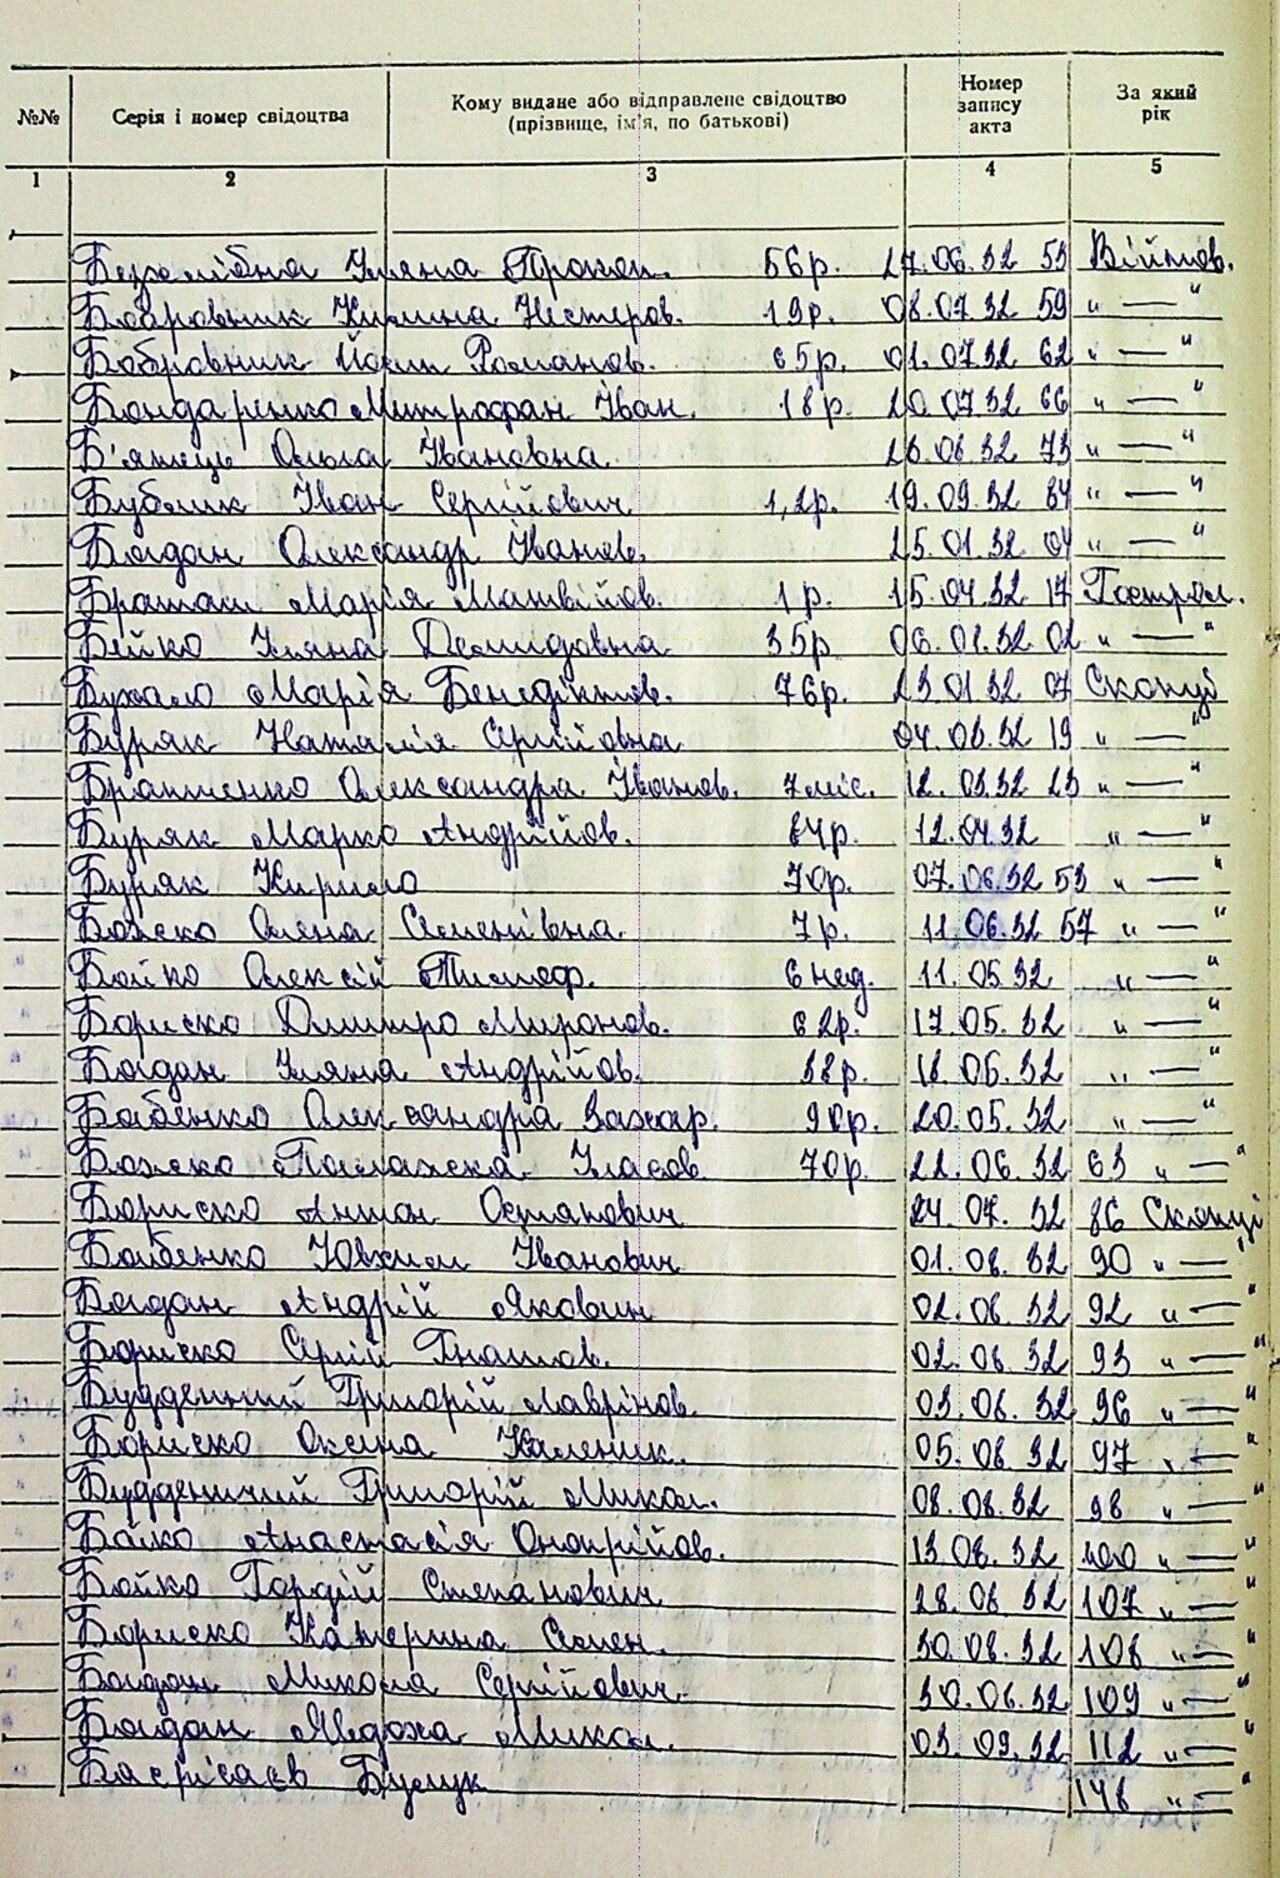 №№ Серія і номер свідоцтва Кому видане або відправлене свідоцтво (прізвище, ім'я, по батькові) Номер запису акта За який рік
1 2 3 4 5
Уляна Прокоп. 56р. 27.06.32 53 Війтов.
Бобровник Килина Нестеров. 19р. 08.07.32 59 " — "
Бобровник Йосип Романов. 65р. 01.07.32 62 " — "
Бондаренко Митрофан Іван. 18р. 20.07.32 66 " — "
Ольга Івановна 73 " — "
Бублик Іван Сергійович 1,2р. 19.09.32 84 " — "
Богдан Олександр Іванов. 25.01.32 04 " — "
Браташ Марія Матвійов. 1р. 15.04.32 17 Гострол.
Бейко Уляна Демидовна 35р. 06.01.32 02 " — "
Бухало Марія Бенедіктов. 76р. 23.01.32 07 Сканці
Буряк Наталія Сергійовна 19 " — "
Братченко Олександра Іванов. 7 міс. 12.03.32 23 " — "
Буряк Марко Андрійов. 84р. 12.04.32 " — "
Буряк Кирило 70р. 07.06.32 53 " — "
Божко Олена Семенівна 7р. 11.06.32 57 " — "
Бойко Олексій Тимоф. 6 нед. 11.05.32 " — "
Бориско Дмитро Миронов. 62р. 17.05.32 " — "
Богдан Уляна Андрійов. 38р. 18.06.32 " — "
Бабенко Олександра Захар. 90р. 20.05.32 " — "
Божко Палажка Уласов. 70р. 22.06.32 63 " — "
Бориско Антон Остапович 24.07.32 86 Сканці
Бабенко Ювхим Іванович 01.08.32 90 " — "
Богдан Андрій Якович 02.08.32 92 " — "
Бориско Сергій Гнатов. 02.08.32 93 " — "
Григорій Лаврінов. 03.08.32 96 " — "
Бориско Оксана Каленик. 05.08.32 97 " — "
Григорій Микол. 08.08.32 98 " — "
Бойко Анастасія Онопрійов. 13.08.32 100 " — "
Бойко Гордій Степанович 28.08.32 107 " — "
Бориско Катерина Семен. 30.08.32 108 " — "
Богдан Микола Сергійович 109 " — "
Богдан Явдоха Микол. 03.09.32 112 " — "
148 " — "